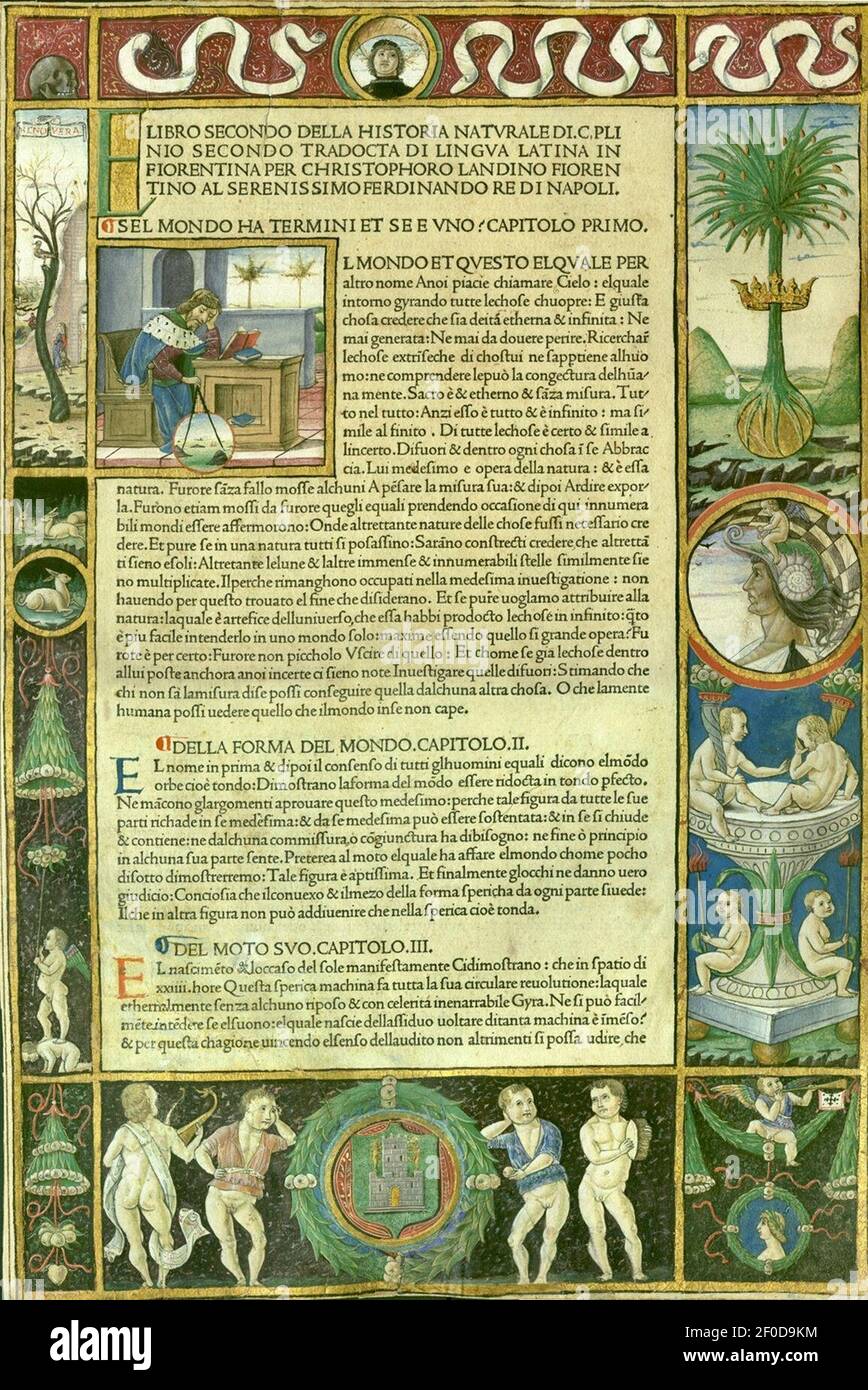 LIBRO SECONDO DELLA HISTORIA NATVRALE DI.C.PLI
NIO SECONDO TRADOCTA DI LINGVA LATINA IN
FIORENTINA PER CHRISTOPHORO LANDINO FIOREN
TINO AL SERENISSIMO FERDINANDO RE DI NAPOLI.
SEL MONDO HA TERMINI ET SE E VNO? CAPITOLO PRIMO.
L MONDO ET QVESTO ELQVALE PER
altro nome Anoi piacie chiamare Cielo: elquale
intorno gyrando tutte lechose chuopre: E giusta
chosa credere che sia deità etherna & infinita: Ne
mai generata: Ne mai da douere perire. Ricerchar
lechose extriseche di chostui ne sapptiene alhuo
mo: ne comprendere lepuò la congectura delhūa/
na mente. Sacro è & etherno & sāza misura. Tut/
to nel tutto: Anzi esso è tutto & è infinito: ma si/
mile al finito. Di tutte lechose è certo & simile a
lincerto. Difuori & dentro ogni chosa ī se Abbrac
cia. Lui medesimo e opera della natura: & è essa
natura. Furore sāza fallo mosse alchuni A pēsare la misura sua: & dipoi Ardire expor/
la. Furono etiam mossi da furore quegli equali prendendo occasione di qui innumera
bili mondi essere affermorono: Onde altrettante nature delle chose fussi necessario cre
dere. Et pure se in una natura tutti si posassino: Sarāno constrecti credere, che altrettā
ti sieno esoli: Altretante lelune & laltre immense & innumerabili stelle similmente sie
no multiplicate. Ilperche rimanghono occupati nella medesima inuestigatione: non
hauendo per questo trouato el fine che disiderano. Et se pure uoglamo attribuire alla
natura: laquale è artefice delluniuerso, che essa habbi prodocto lechose in infinito: q̄to
è piu facile intenderlo in uno mondo solo: maxime essendo quello si grande opera? Fu
rore è per certo: Furore non piccholo Vscire di quello: Et chome se gia lechose dentro
allui poste anchora anoi incerte ci sieno note Inuestigare quelle difuori: Stimando che
chi non sā lamisura di se possi conseguire quella dalchuna altra chosa. O che lamente
humana possi uedere quello che ilmondo inse non cape.
DELLA FORMA DEL MONDO. CAPITOLO. II.
EL nome in prima & dipoi il consenso di tutti glhuomini equali dicono elmōdo
orbe cioè tondo: Dimostrano laforma del mōdo essere ridocta in tondo pfecto.
Ne mācono glargomenti aprouare questo medesimo: perche tale figura da tutte le sue
parti richade in se medesima: & da se medesima può essere sostentata: & in se si chiude
& contiene: ne dalchuna commissura, o cōgiunctura ha dibisogno: ne fine ò principio
in alchuna sua parte sente. Preterea al moto elquale ha affare elmondo chome pocho
disotto dimosterremo: Tale figura è aptissima. Et finalmente glocchi ne danno uero
giudicio: Conciosia che ilconuexo & ilmezo della forma spericha da ogni parte siuede:
Ilche in altra figura non può addiuenire che nella sperica cioè tonda.
DEL MOTO SVO. CAPITOLO. III.
EL nascimēto & loccaso del sole manifestamente Cidimostrano: che in spatio di
xxiiii. hore Questa sperica machina fa tutta la sua circulare reuolutione: laquale
ethernalmente senza alchuno riposo & con celerità inenarrabile Gyra. Ne si può facil/
mēte intēdere se elsuono: elquale nascie dellassiduo uoltare ditanta machina è īmēso?
& per questa chagione uincendo elsenso dellaudito non altrimenti si possa udire, che
alamy
Image ID: 2F0D9KM
www.alamy.com